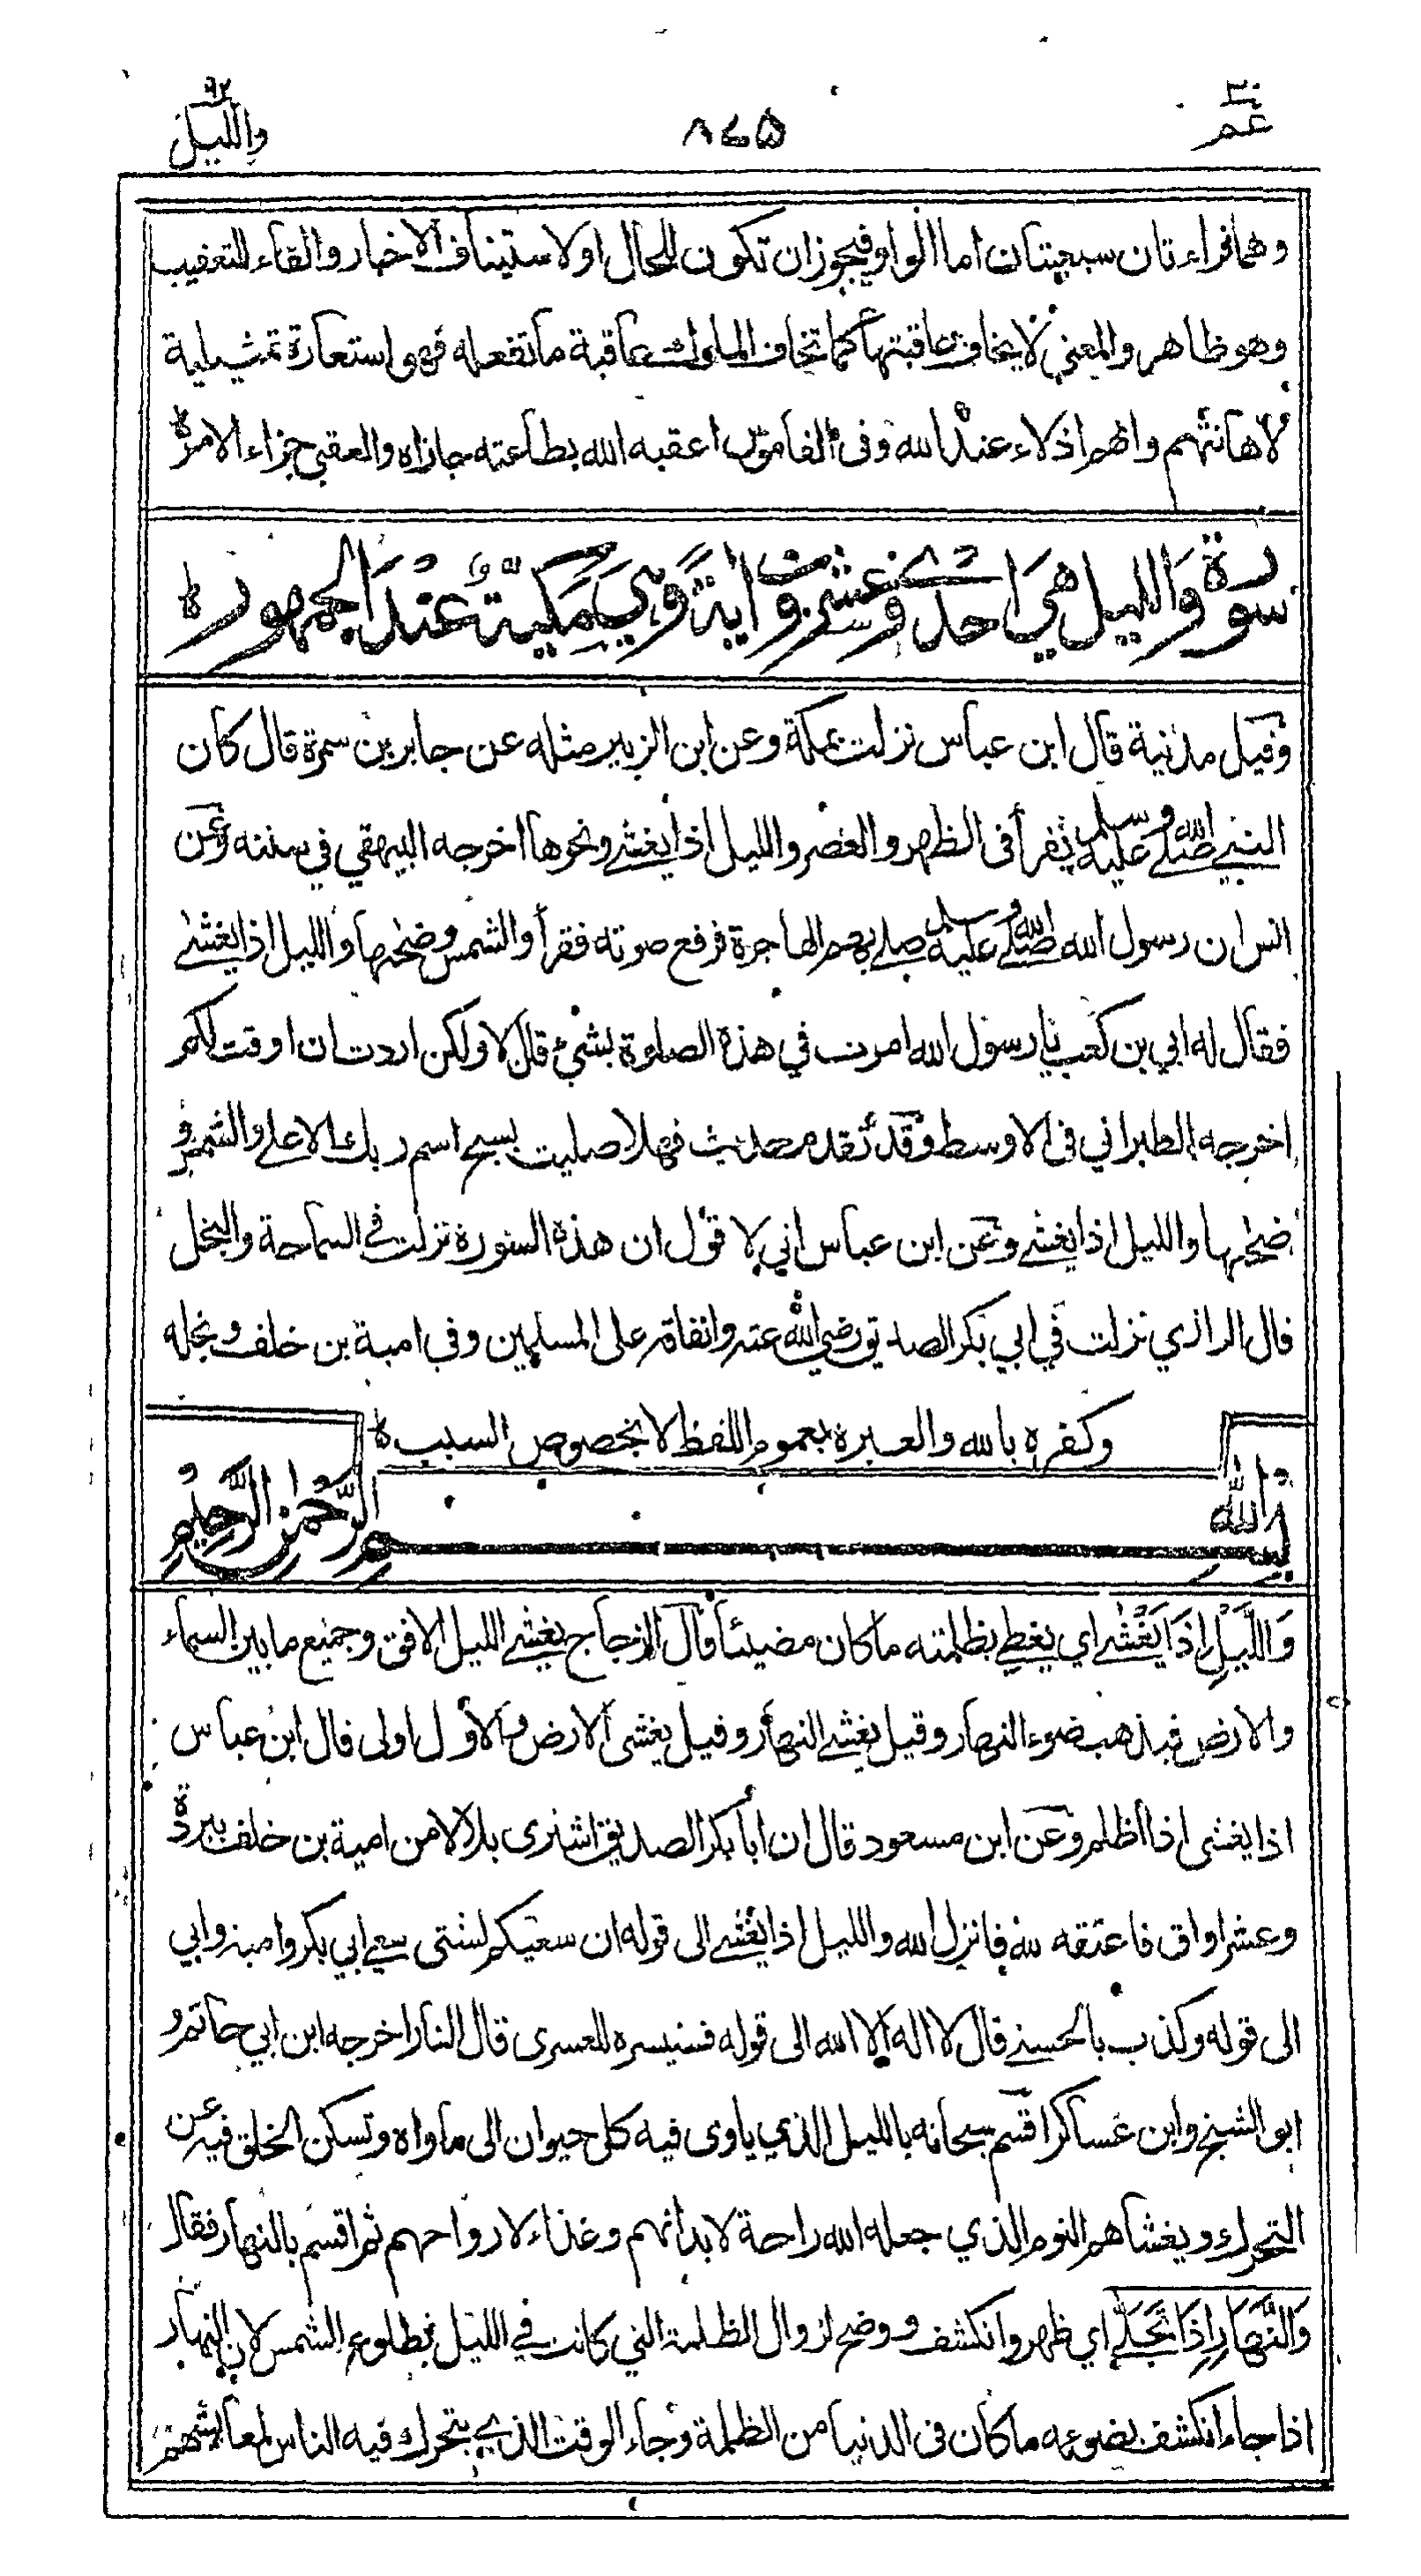 ٣٠
عم
٨٤٥
٩٢
والليل
وهما قراءتان سبعيتان اما الواو فيجوز ان تكون للحال او لاستيناف الاخبار والفاء للتعقيب
وهو ظاهر والمعنى لا يخاف عاقبتها كما تخاف الملوك عاقبة ما تفعله فهي استعارة تمثيلية
لاهانتهم وانهم اذلاء عند الله وفى القاموس اعقبه الله بطاعته جازاه والعقبى جزاء الامر ه
سورة والليل هي احدى وعشرون اية وهي مكية عند الجمهور ه
وقيل مدنية قال ابن عباس نزلت بمكة وعن ابن الزبير مثله عن جابر بن سمرة قال كان
النبي صلى الله عليه وسلم يقرأ فى الظهر والعصر والليل اذا يغشى ونحوها اخرجه البيهقي في سننه وعن
انس ان رسول الله صلى الله عليه وسلم صلى بهم الهاجرة فرفع صوته فقرأ والشمس وضحها والليل اذا يغشى
فقال له ابي بن كعب يا رسول الله امرت في هذه الصلوة بشئ قال لا ولكن اردت ان اوقت لكم
اخرجه الطبراني فى الاوسط وقد تقدم حديث فهلا صليت بسبح اسم ربك الاعلى والشمس و
ضحها والليل اذا يغشى وعن ابن عباس اني لا قول ان هذه السورة نزلت في السماحة والبخل
قال الرازي نزلت في ابي بكر الصديق رضي الله عنه وانفاقه على المسلمين وفى امية بن خلف وبخله
وكفره بالله والعبرة بعموم اللفظ لا بخصوص السبب ه
بسم الله الرحمن الرحيم
وَاللَّيْلِ إِذَا يَغْشَى اي يغطي بظلمته ما كان مضيئا قال الزجاج يغشى الليل الافق وجميع ما بين السماء
والارض فيذهب ضوء النهار وقيل يغشى النهار وقيل يغشى الارض والاول اولى قال ابن عباس
اذا يغشى اذا اظلم وعن ابن مسعود قال ان ابا بكر الصديق اشترى بلالا من امية بن خلف ببردة
وعشر اواق فاعتقه لله فانزل الله والليل اذا يغشى الى قوله ان سعيكم لشتى سعي ابي بكر وامية وابي
الى قوله وكذب بالحسنى قال لا اله الا الله الى قوله فسنيسره للعسرى قال النار اخرجه ابن ابي حاتم و
ابو الشيخ وابن عساكر اقسم سبحانه بالليل الذي ياوى فيه كل حيوان الى ماواه وتسكن الخلق فيه عن
التحرك ويغشاهم النوم الذي جعله الله راحة لابدانهم وغذاء لارواحهم ثم اقسم بالنهار فقال
وَالنَّهَارِ إِذَا تَجَلَّى اي ظهر وانكشف ووضح لزوال الظلمة التي كانت في الليل بطلوع الشمس لان النهار
اذا جاء انكشف بضوءه ما كان فى الدنيا من الظلمة وجاء الوقت الذي يتحرك فيه الناس لمعايشهم